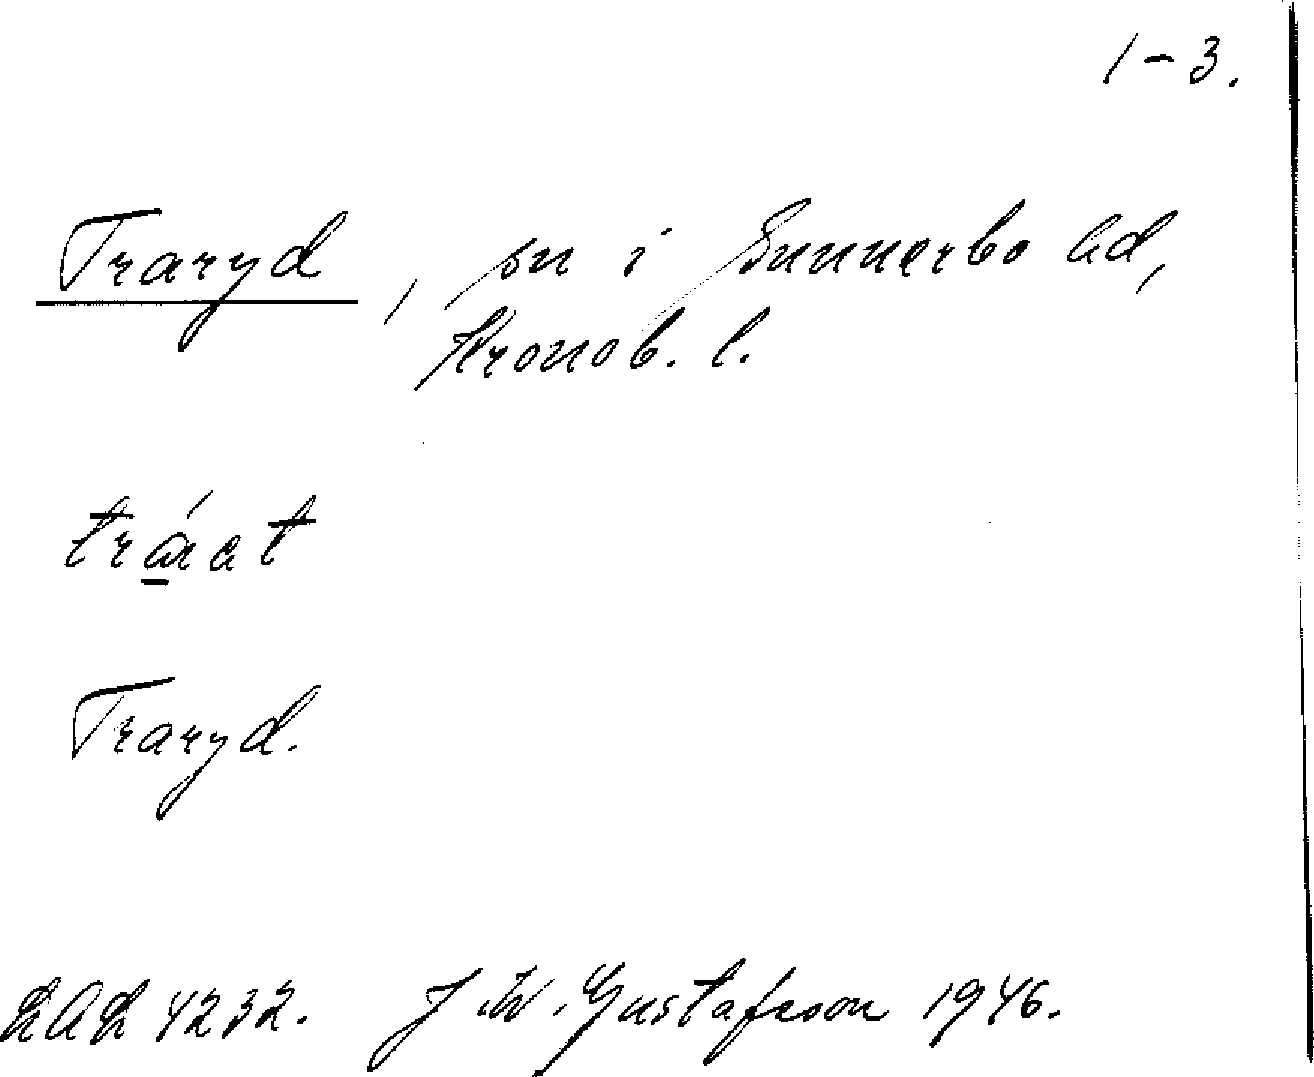 1-3.
Traryd, sn i Sunnerbo hd,
Kronob. l.
Traryd.
LAL 4232. J. W. Gustafsson 1946.